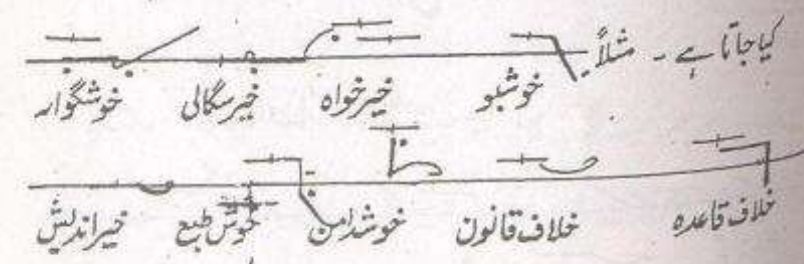 کیا جاتا ہے ۔ مثلاً
خوشبو خیرخواہ خیرسگالی خوشگوار
خلاف قاعدہ خلاف قانون خوشدامن خوش طبع خیراندیش